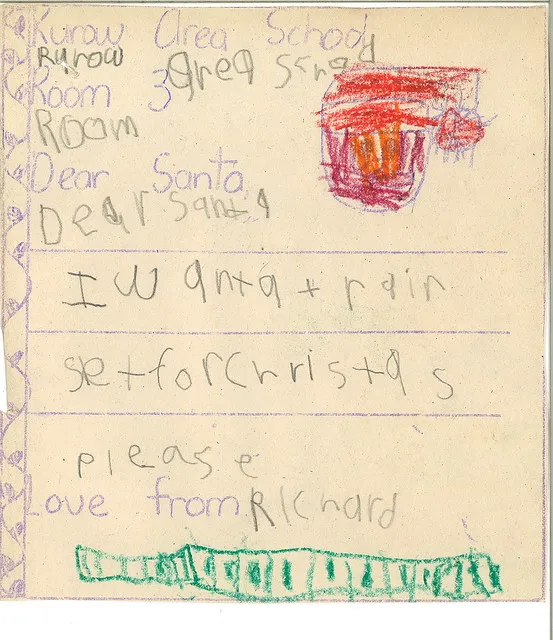 Kurow Area School
Kurow area Schod
Room 3
Room
Dear Santa
Dear Santa
I want a train
set for Christas
please
Love from Richard